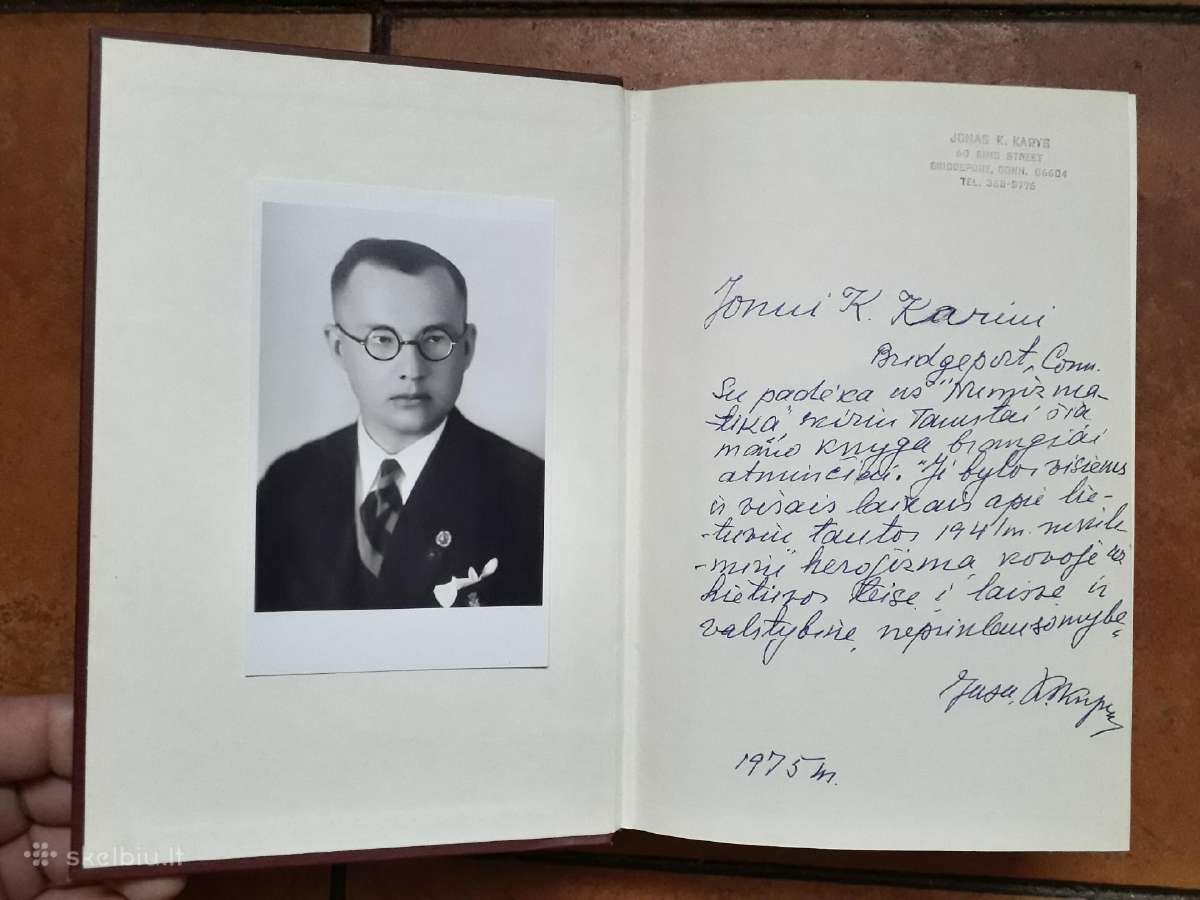 JONAS K. KARYS
60 STREET
BRIDGEPORT, CONN. 06604
TEL. 368-9776
Jonui K. Kariui
Bridgeport, Conn.
Su padėka už "Numizma-
tiką" skiriu Tamstai šią
mano knygą brangiai
atminčiai. "Ji bylos visiems
ir visais laikais apie lie-
-tuvių tautos 1941 m.
herojizmą kovoje už
Lietuvos teisę į laisvę ir
valstybinę nepriklausomybę"
1975 m.
skelbiu.lt